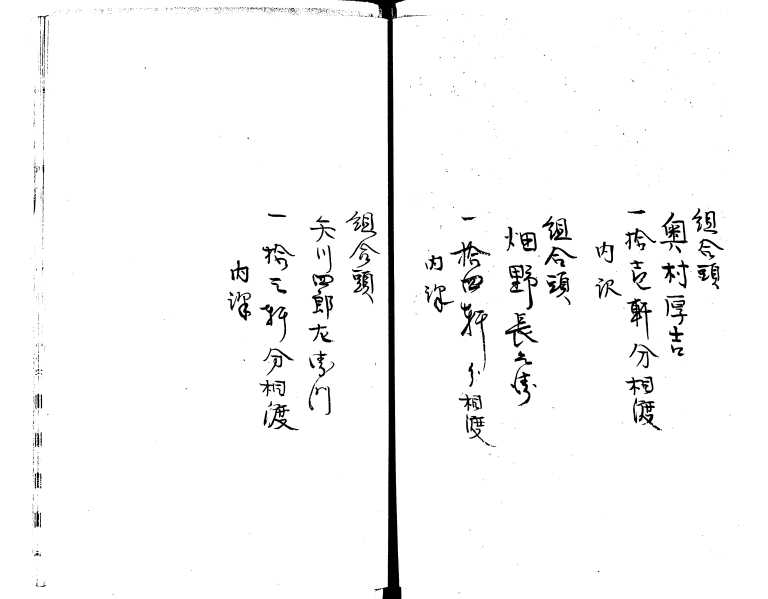 組合頭
奥村厚吉
一拾壱軒分相渡
内訳
組合頭
畑野長兵衛
一拾四軒分相渡
内訳
組合頭
矢川四郎左衛門
一拾三軒分相渡
内訳